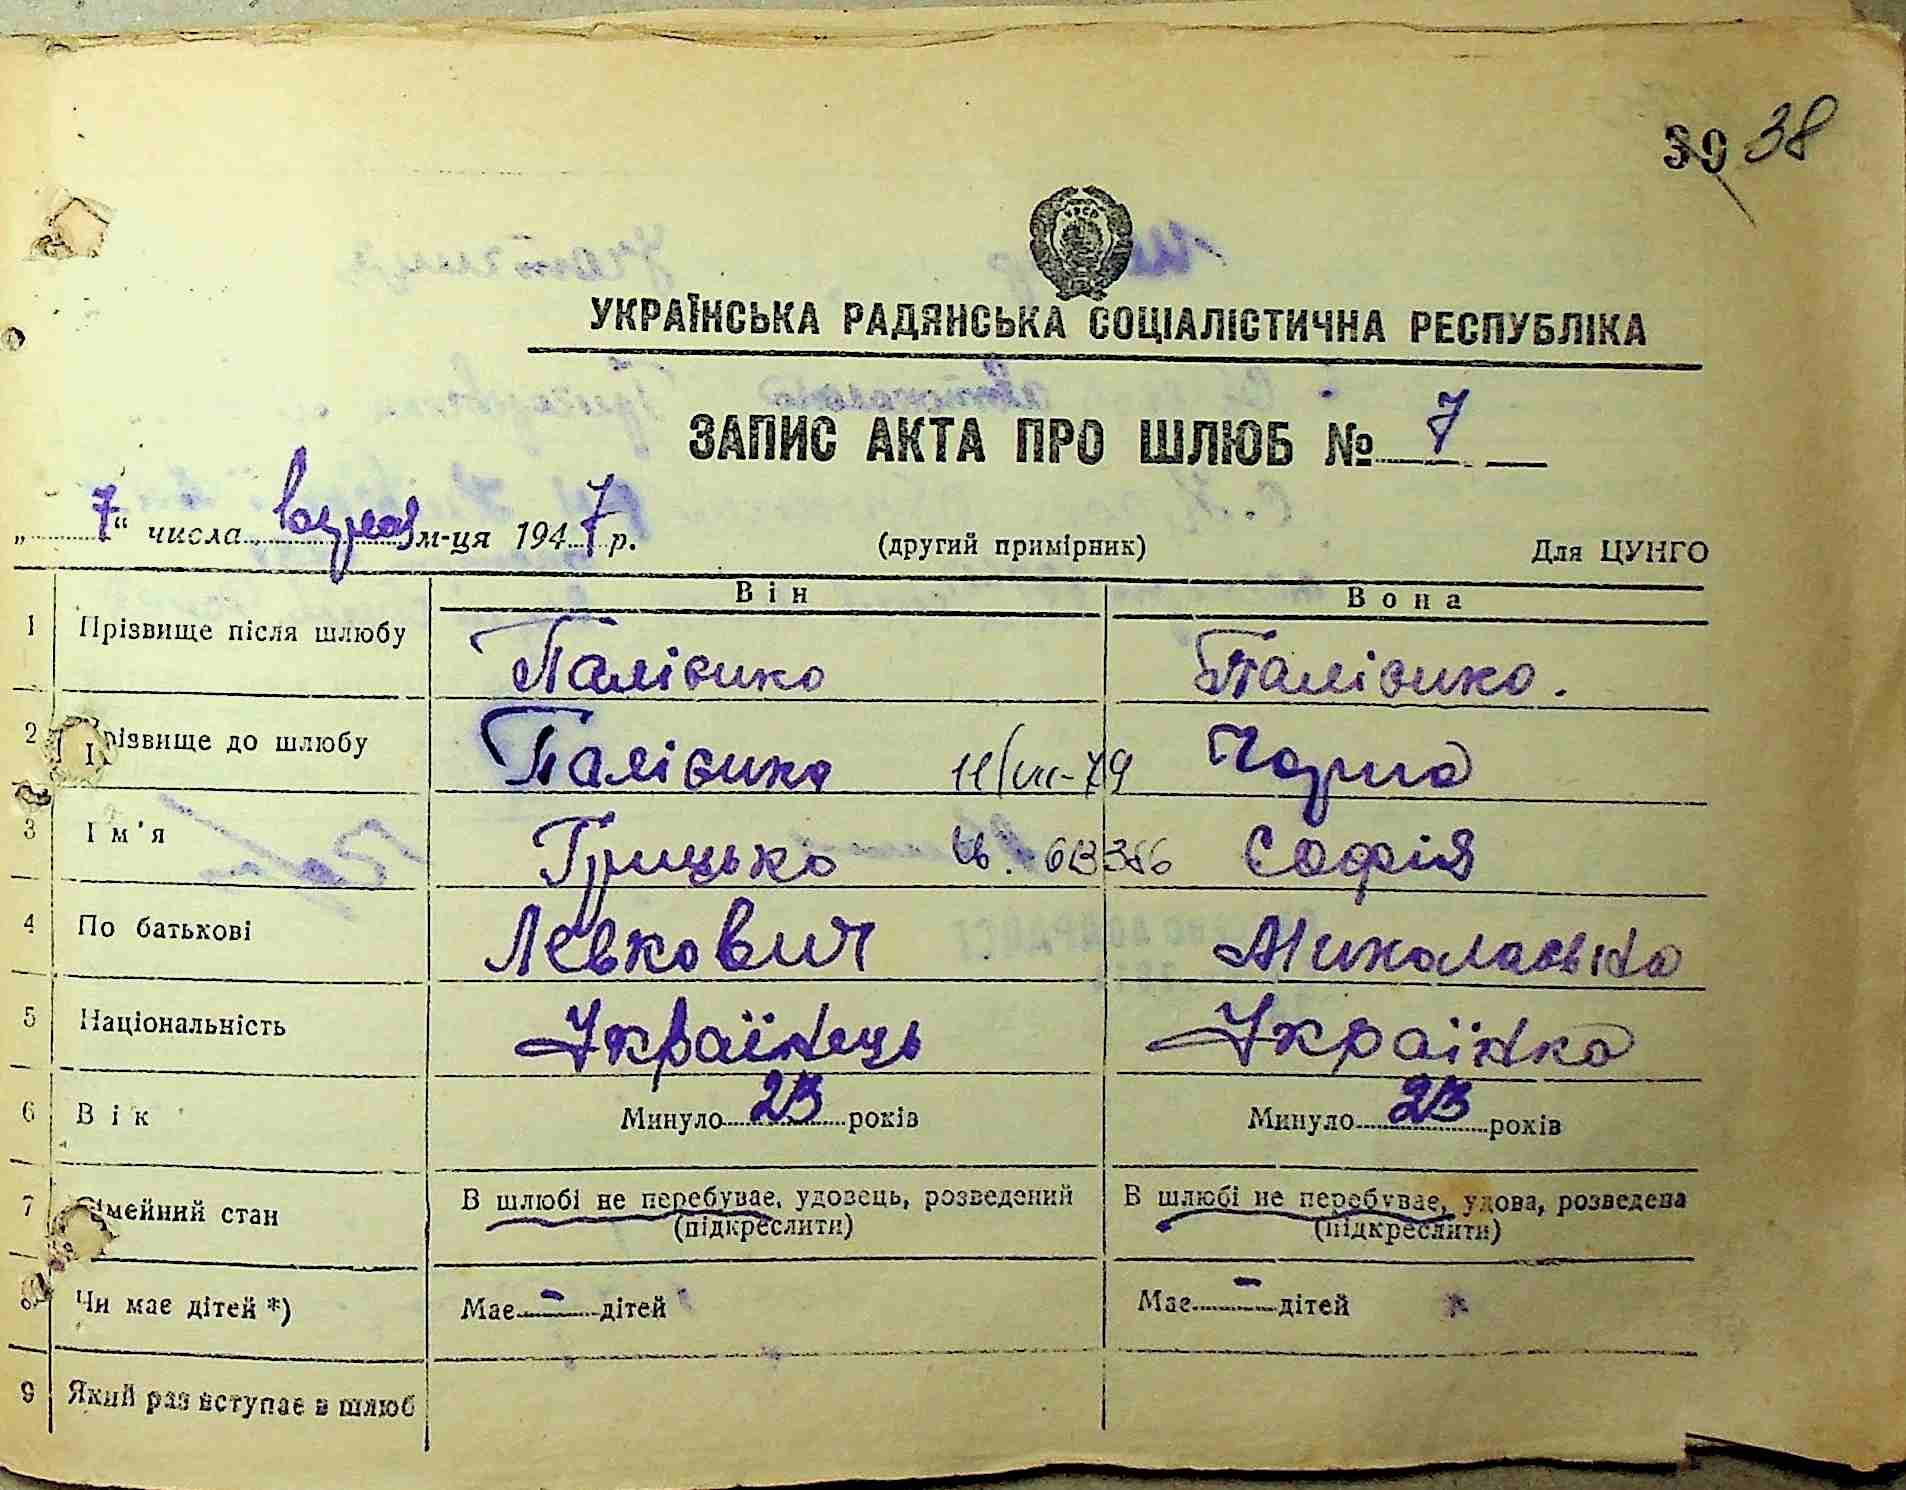 30 38
УРСР
УКРАЇНСЬКА РАДЯНСЬКА СОЦІАЛІСТИЧНА РЕСПУБЛІКА
ЗАПИС АКТА ПРО ШЛЮБ № 7
„ 7 “ числа м-ця 1947 р. (другий примірник) Для ЦУНГО
Він Вона
1 Прізвище після шлюбу Палівико Палівико.
2 Прізвище до шлюбу Палівико 11/VII-79 Чорна
3 Ім'я Грицько 613356 Софія
4 По батькові Левкович Миколаєвна
5 Національність Українець Українка
6 Вік Минуло 23 років Минуло 23 років
7 Сімейний стан В шлюбі не перебуває, удовець, розведений В шлюбі не перебуває, удова, розведена
(підкреслити) (підкреслити)
8 Чи має дітей *) Має — дітей Має — дітей
9 Який раз вступає в шлюб